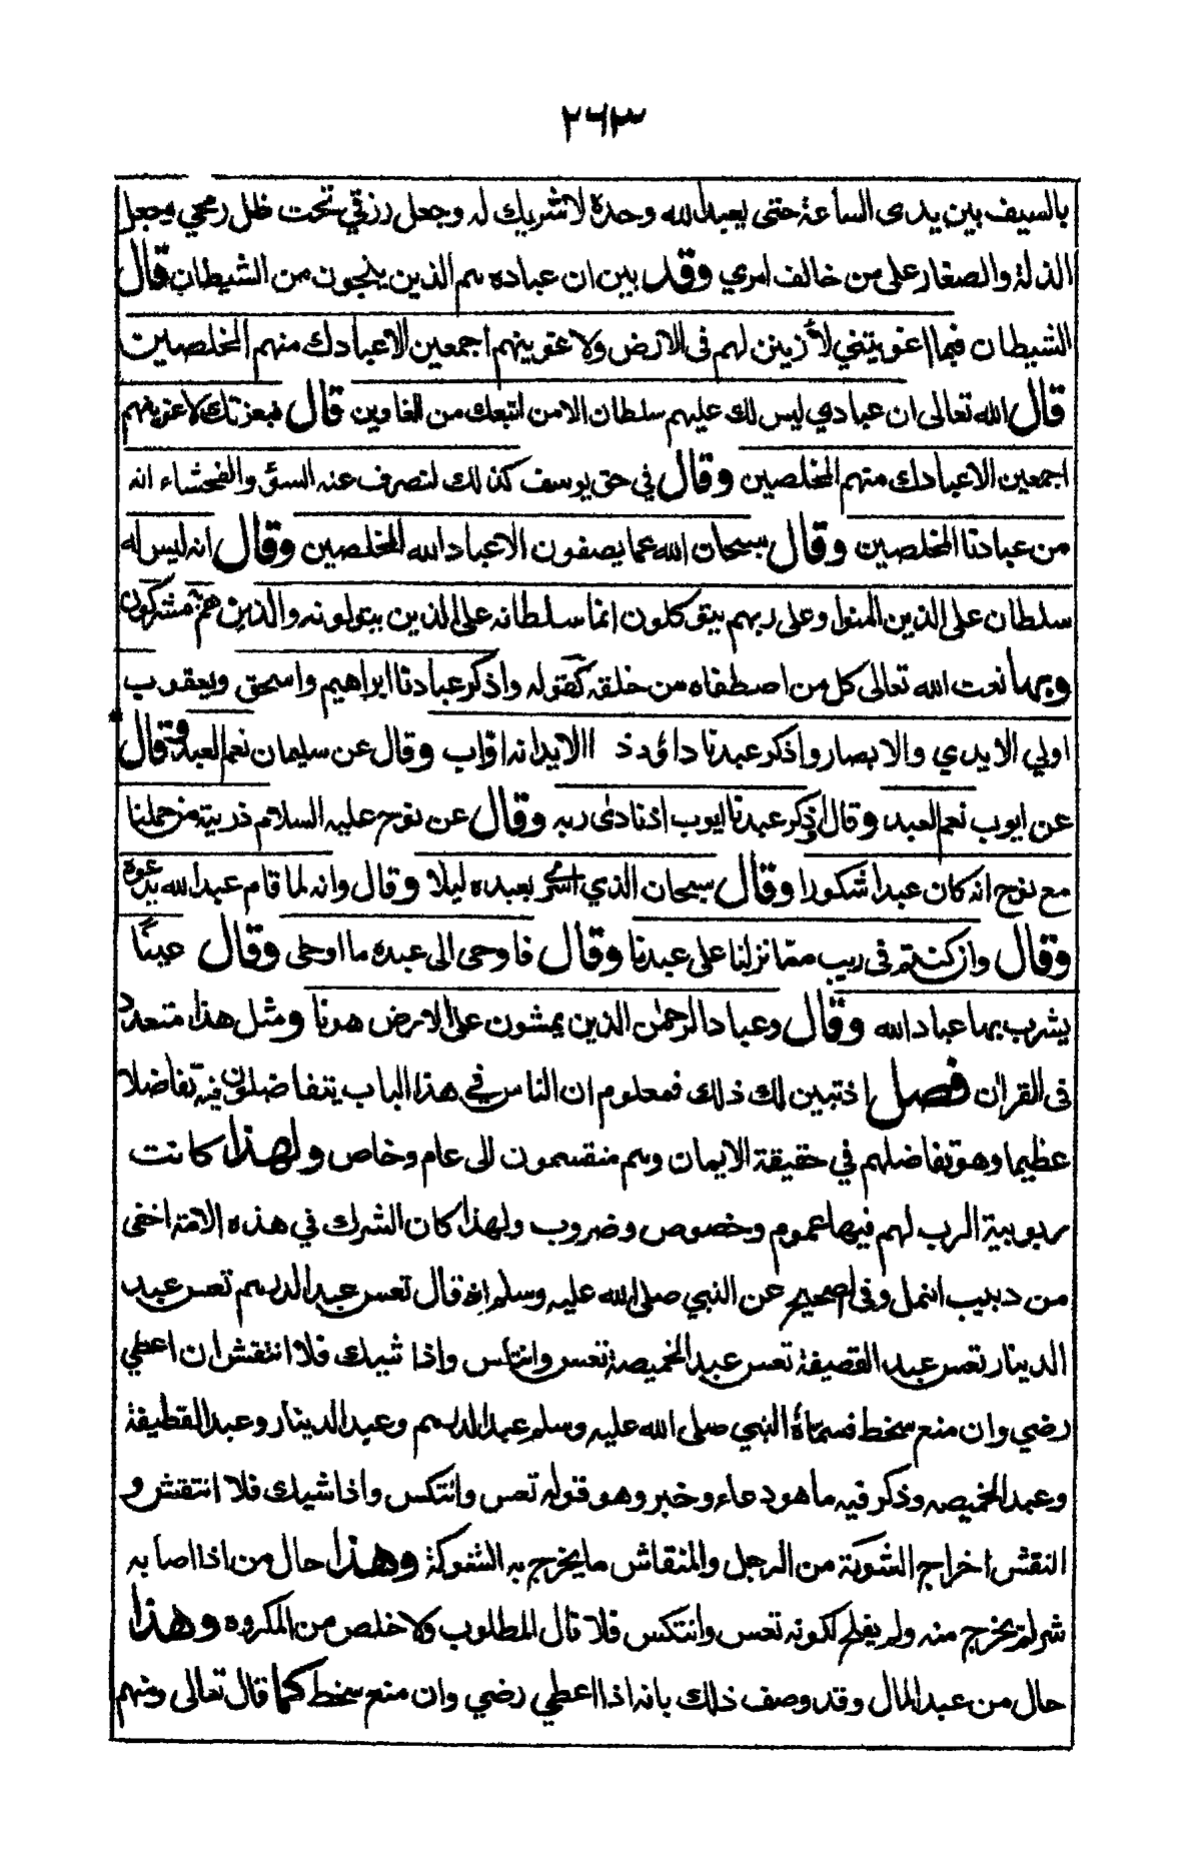 ٢٦٣
بالسيف بين يدى الساعة حتى يعبد الله وحده لا شريك له وجعل رزقي تحت ظل رمحي وجعل
الذلة والصغار على من خالف امري وقد بين ان عباده هم الذين ينجون من الشيطان قال
الشيطان فبما اغويتني لأزينن لهم فى الارض ولاغوينهم اجمعين الا عبادك منهم المخلصين
قال الله تعالى ان عبادي ليس لك عليهم سلطان الا من اتبعك من الغاوين قال فبعزتك لاغوينهم
اجمعين الا عبادك منهم المخلصين وقال في حق يوسف كذلك لنصرف عنه السوٓ والفحشاء انه
من عبادنا المخلصين وقال سبحان الله عما يصفون الا عباد الله المخلصين وقال انه ليس له
سلطان على الذين امنوا وعلى ربهم يتوكلون انما سلطانه على الذين يتولونه والذين هم به مشركون
وبها نعت الله تعالى كل من اصطفاه من خلقه كقوله واذكر عبادنا ابراهيم واسحق ويعقوب
اولي الايدي والابصار واذكر عبدنا داؤد ذ االايد انه اواب وقال عن سليمان نعم العبد وقال
عن ايوب نعم العبد وقال واذكر عبدنا ايوب اذ نادى ربه وقال عن نوح عليه السلام ذرية من حملنا
مع نوح انه كان عبدا شكورا وقال سبحان الذي اسرى بعبده ليلا وقال وانه لما قام عبد الله يدعوه
وقال وان كنتم فى ريب مما نزلنا على عبدنا وقال فاوحى الى عبده ما اوحى وقال عينًا
يشرب بها عباد الله وقال وعباد الرحمٰن الذين يمشون على الارض هونا ومثل هذا متعدد
فى القراٰن فصل اذ تبين لك ذلك فمعلوم ان الناس في هذا الباب يتفاضلون فيه تفاضلا
عظيما وهو تفاضلهم في حقيقة الايمان وهم منقسمون الى عام وخاص ولهذا كانت
ربوبية الرب لهم فيها عموم وخصوص وضروب ولهذا كان الشرك في هذه الامة اخفى
من دبيب النمل وفى الصحيح عن النبي صلى الله عليه وسلم انه قال تعس عبد الدرهم تعس عبد
الدينار تعس عبد القصيفة تعس عبد الخميصة تعس وانتكس واذا شيك فلا انتقش ان اعطي
رضي وان منع سخط فسماهٔ النبي صلى الله عليه وسلم عبد الدرهم وعبد الدينار وعبد القطيفة
وعبد الخميصه وذكر فيه ما هو دعاء وخبر وهو قوله تعس وانتكس واذا شيك فلا انتقش و
النقش اخراج الشوكة من الرجل والمنقاش ما يخرج به الشوكة وهذا حال من اذا اصابه
شر لم يخرج منه ولم يفلح لكونه تعس وانتكس فلا قال المطلوب ولا خلص من المكروه وهذا
حال من عبد المال وقد وصف ذلك بانه اذا اعطي رضي وان منع سخط كما قال تعالى ومنهم